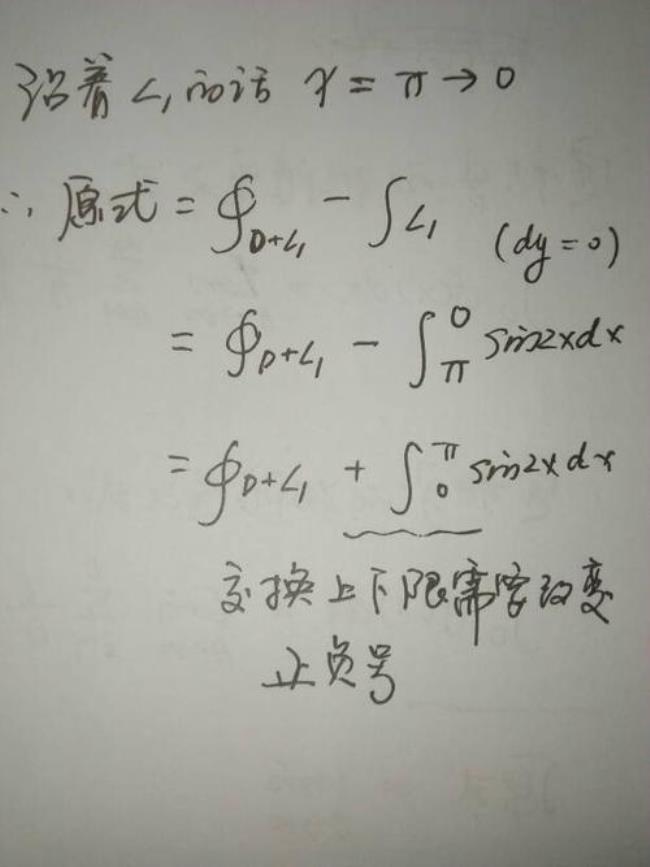 沿着L₁的话 x = π → 0
∴ 原式 = ∮_{D+L₁} - ∫_{L₁} (dy = 0)
= ∮_{D+L₁} - ∫_π^0 sin2xdx
= ∮_{D+L₁} + ∫_0^π sin2xdx
交换上下限需要改变
正负号